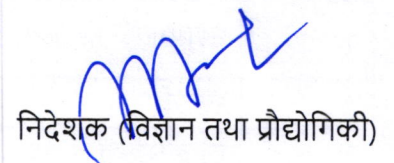 निदेशक (विज्ञान तथा प्रौद्योगिकी)